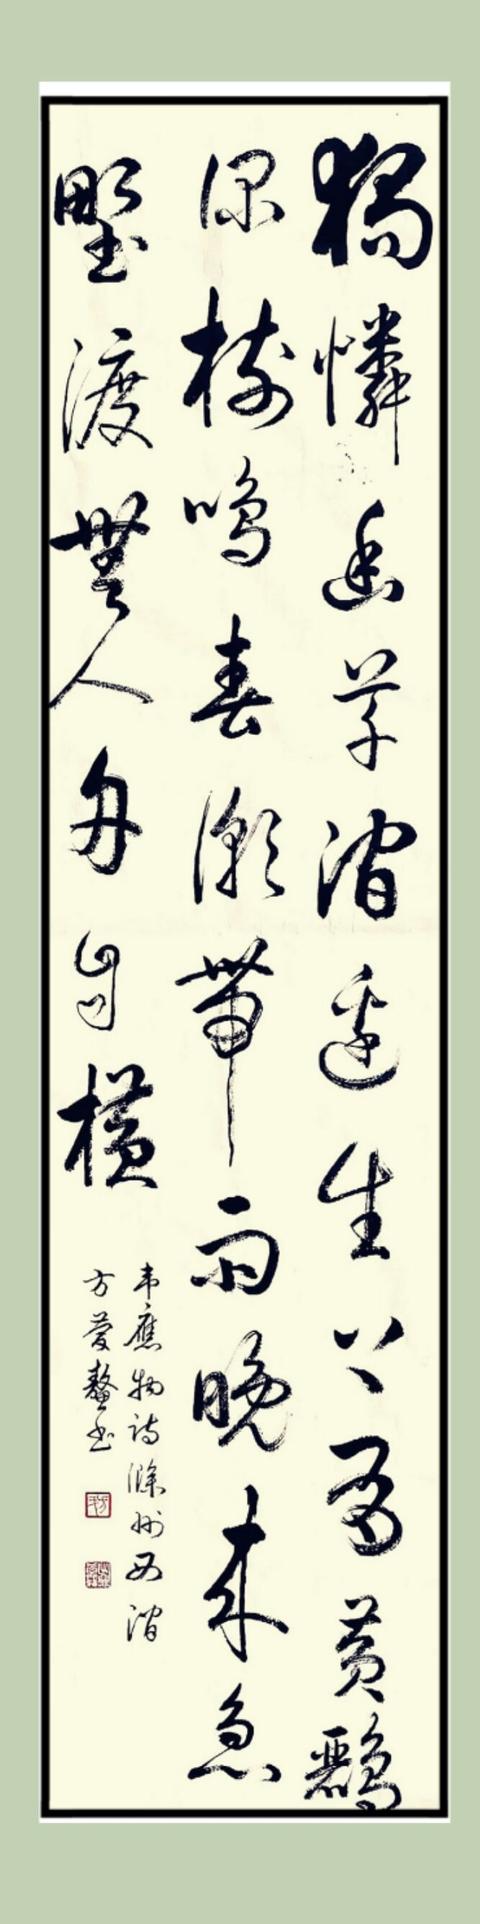 獨憐幽草澗邊生上有黃鸝
深樹鳴春潮帶雨晚來急
野渡無人舟自橫
韋應物詩滁州西澗
方鰲書